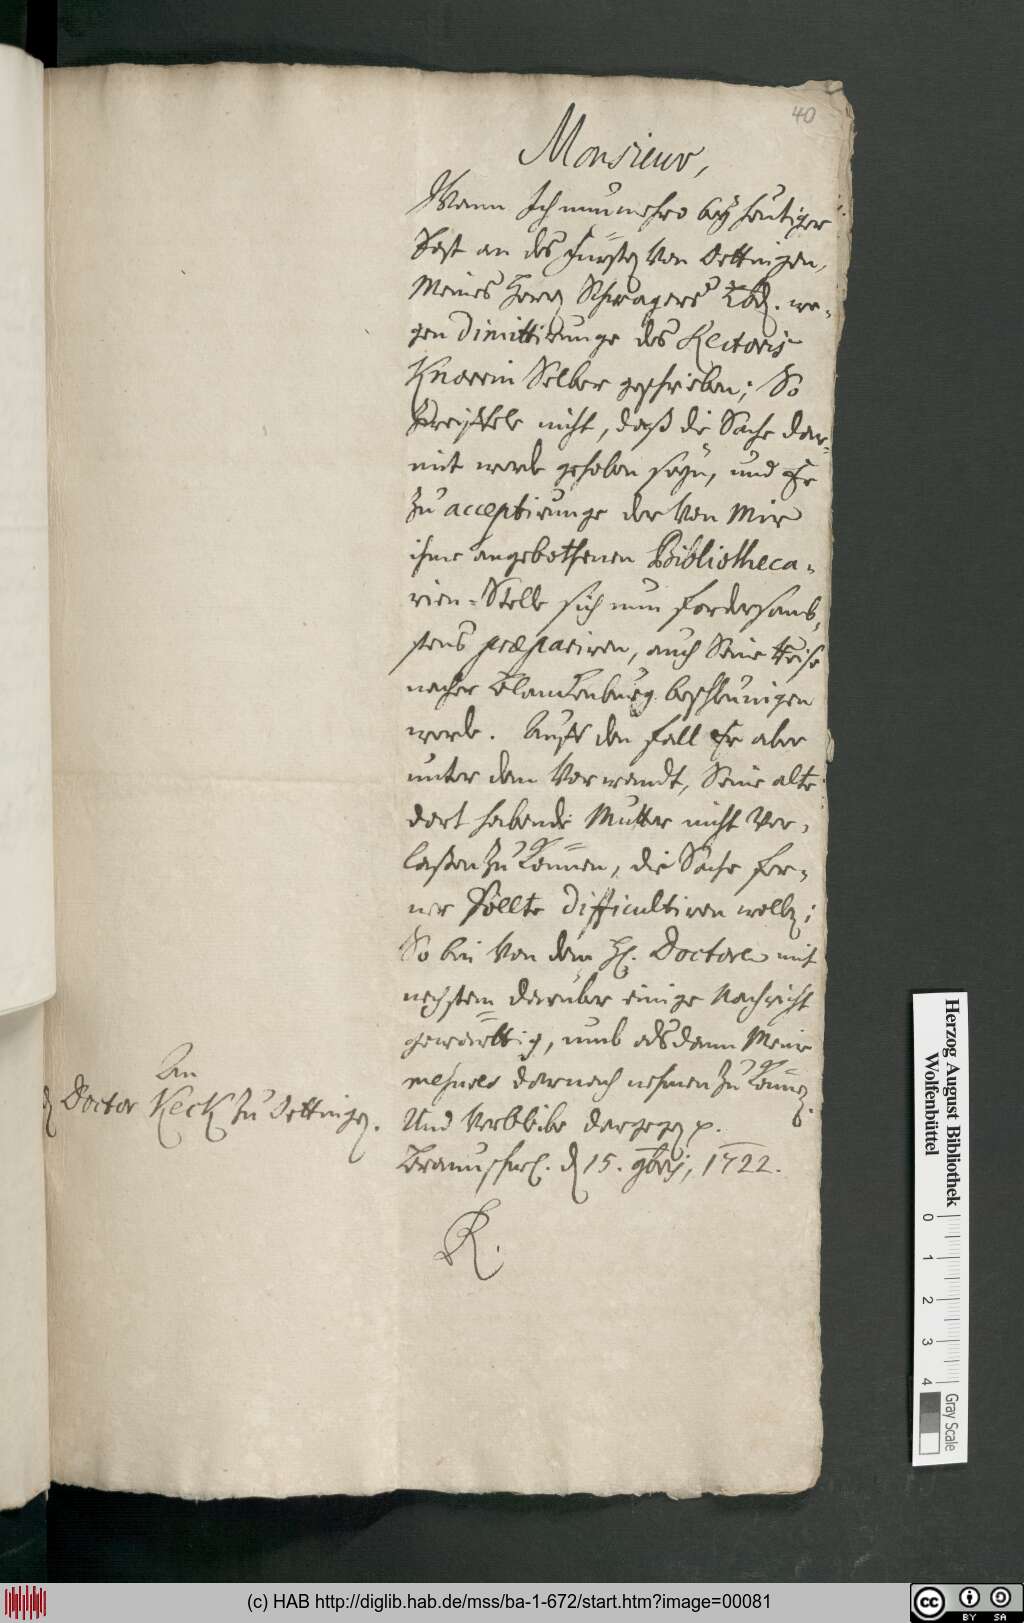 40
Monsieur,
Wann Ich nunmehro bey heutiger
Post an des Fürsten von Oettingen,
Meines Herrn Schwagers Lbd. we-
gen Dimittirunge des Rectoris
Knorrin Selber geschrieben; So
Zweiffele nicht, daß die Sache dar-
mit werde gehoben seyn, und Er
zu acceptirunge der von Mir
ihme angebothenen Bibliotheca-
rien-Stelle sich nun fordersamb-
stens præpariren, auch Seine Reise
nacher Blanckenburg beschleunigen
werde. Auff den fall Er aber
unter dem Vorwandt, Seine alte
dort habende Mutter nicht Ver-
laßen zu können, die Sache fer-
ner sollte difficultiren wollen;
So bin von dem H. Doctore mit
nechstem darüber einige Nachricht
gewärttig, umb alsdann Meine
mesures darnach nehmen zu können.
Und Verbleibe dargegen p.
Braunschw. d 15. 9bris, 1722.
R.
An
d Doctor Keck zu Oettingen.
Herzog August Bibliothek
Wolfenbüttel
0 1 2 3 4
Gray Scale
(c) HAB http://diglib.hab.de/mss/ba-1-672/start.htm?image=00081
cc BY SA